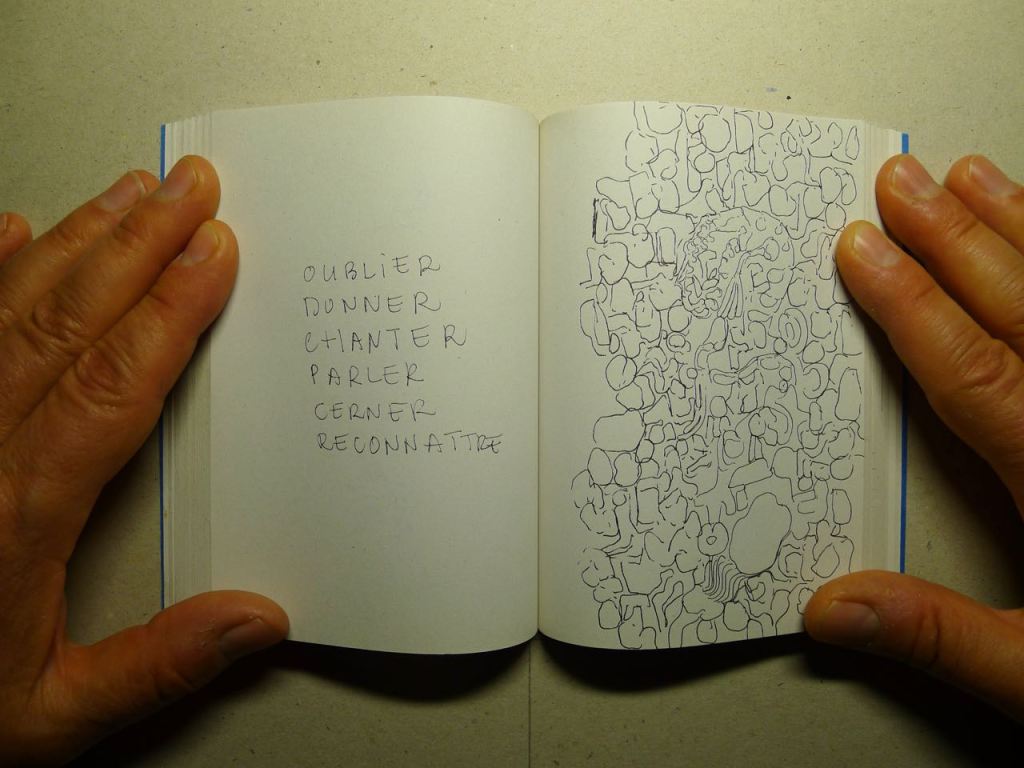 OUBLIER
DONNER
CHANTER
PARLER
CERNER
RECONNAITRE